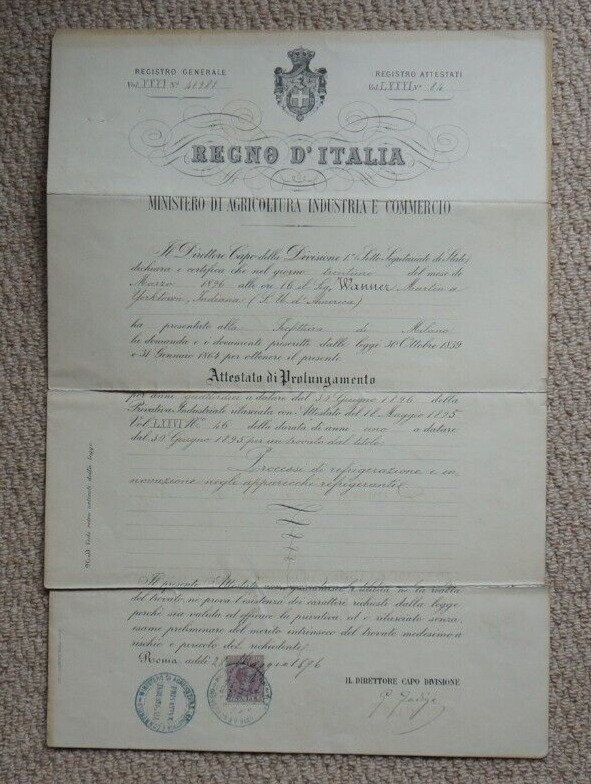 REGISTRO GENERALE
Vol. XXXI N° 41381
REGISTRO ATTESTATI
Vol. LXXXI N° 84
REGNO D'ITALIA
MINISTERO DI AGRICOLTURA INDUSTRIA E COMMERCIO
Il Direttore Capo della Divisione 1ª Sotto Segretariato di Stato
dichiara e certifica che nel giorno trentuno del mese di
Marzo 1896 alle ore 16 il Sig. Wanner Martin a
Yorktown, Indiana (S. U. d'America)
ha presentato alla Prefettura di Milano
la domanda e i documenti prescritti dalle leggi 30 Ottobre 1859
e 31 Gennaio 1864 per ottenere il presente
Attestato di Prolungamento
per anni a datare dal 30 Giugno 1896 della
Privativa Industriale rilasciata con Attestato del Maggio 1895
Vol. LXXVI N° 46 della durata di anni uno a datare
dal 30 Giugno 1895 per un trovato dal titolo:
Processi di refrigerazione e in
novazione negli apparecchi refrigeranti
Il presente Attestato non garantisce l'utilità nè la realtà
del trovato, nè prova l'esistenza dei caratteri richiesti dalla legge
perchè sia valida ed efficace la privativa ed è rilasciato senza
esame preliminare del merito intrinseco del trovato medesimo a
rischio e pericolo del richiedente.
Roma, addì 1896
IL DIRETTORE CAPO DIVISIONE